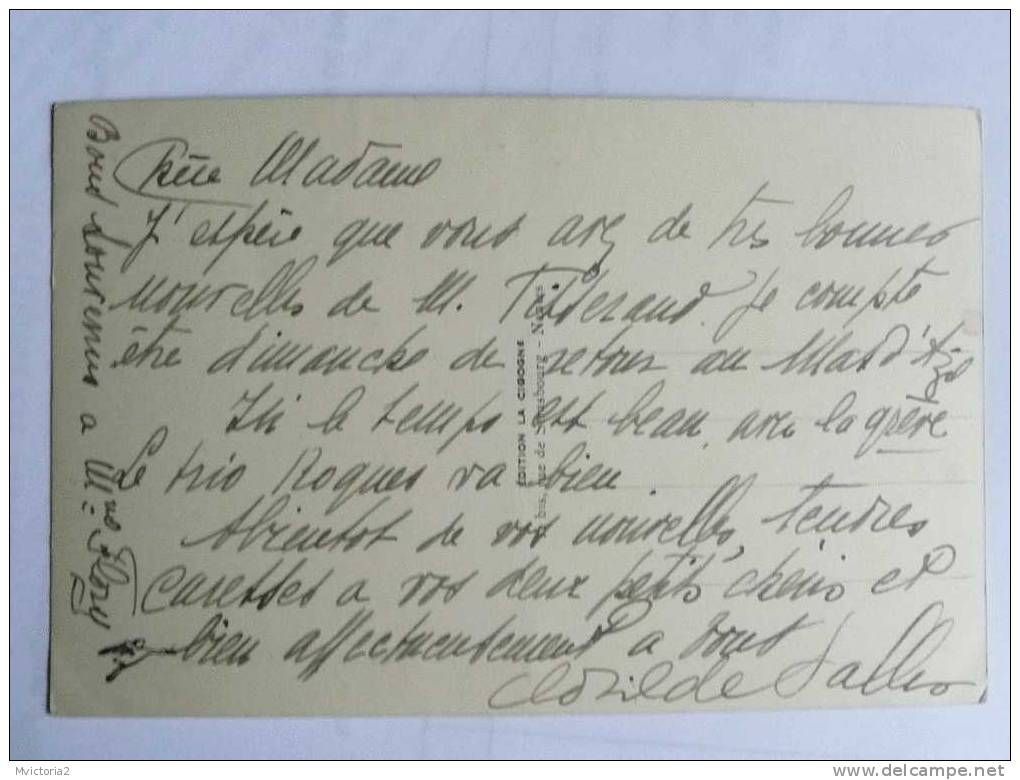 Chère Madame
J'espère que vous avez de très bonnes
nouvelles de M. Je compte
être dimanche de retour au Mas d'Azil
Ici le temps est beau, avec la grève
Le trio Roques va bien.
Abientot de vos nouvelles, tendres
caresses a vos deux petits chéris et
bien affectueusement a vous
Clotilde
Bons souvenirs a Mme
EDITION LA CIGOGNE
bis, rue de Strasbourg - Nantes
Mvictoria2
www.delcampe.net